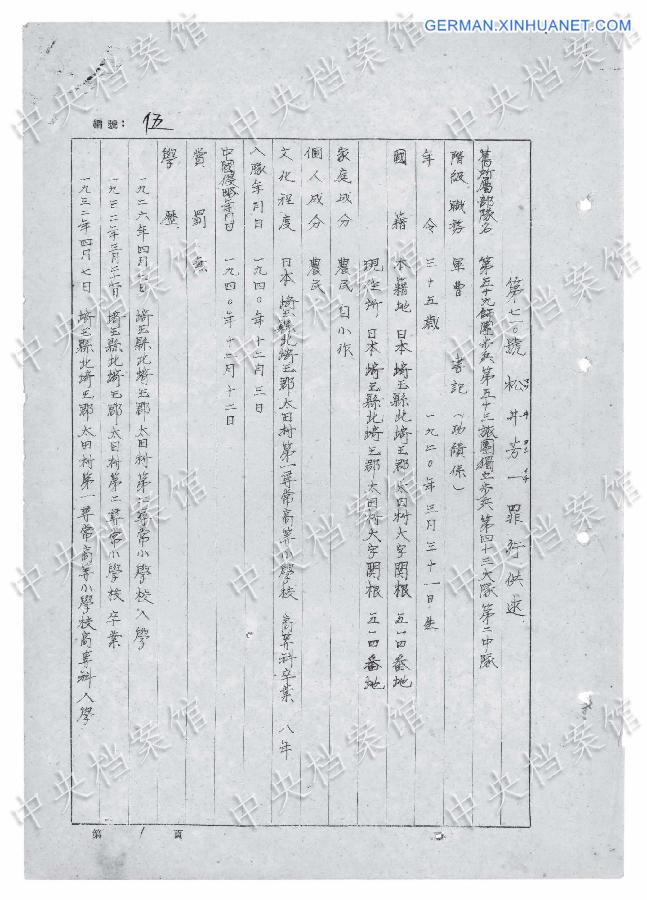 GERMAN.XINHUANET.COM
編號： 伍
第七一〇號 松井芳一 罪行供述
舊所屬部隊名 第五十九師團步兵第五十三旅團獨立步兵第四十三大隊第二中隊
階級、職務 軍曹 書記（功績係）
年 令 三十五歳 一九二〇年三月三十一日生
國 籍 本籍地 日本埼玉縣北埼玉郡太田村大字関根 五一四番地
現住所、日本埼玉縣北埼玉郡太田村大字関根 五一四番地
家庭成分 農民 自小作
個人成分 農民
文化程度 日本埼玉縣北埼玉郡太田村第一尋常高等小學校 高等科卒業 八年
入隊年月日 一九四〇年十二月三日
中國侵略年月日 一九四〇年十二月十二日
賞 罰 無
學 歷
一九二六年四月 日 埼玉縣北埼玉郡太田村第二尋常小學校入學
一九三二年三月二十 日 埼玉縣北埼玉郡太田村第二尋常小學校卒業
一九三二年四月七日 埼玉縣北埼玉郡太田村第一尋常高等小學校高等科入學
第 1 頁
中央档案馆
中央档案馆
中央档案馆
中央档案馆
中央档案馆
中央档案馆
中央档案馆
中央档案馆
中央档案馆